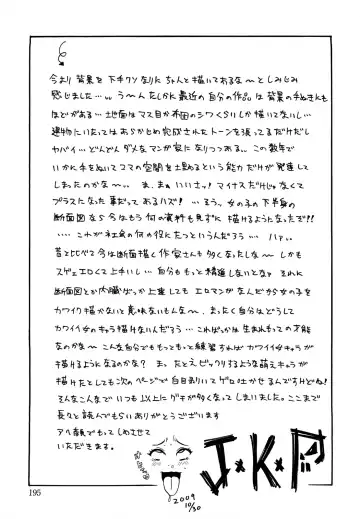 今より背景を下手クソなりにちゃんと描いてあるな〜としみじみ
感じました…。う〜んたしかに最近の自分の作品は背景の手ぬきにも
ほどがある…地面はマス目か布団のシワくらいしか描いてないし…
建物にいたってはあらかじめ完成されたトーンを張ってるだけだし
ヤバイ…どんどんダメなマンガ家になりつつある… この数年で
いかに手をぬいてコマの空間を土里めるという能力だけが発達して
しまったのかな〜。ま、まぁいいさッ!マイナスだけじゃなくて
プラスになった事だってあるハズ!…るうっ、女の子の下半身の
断面図なら今はもう何の資料も見ずに描けるようになったぞ!!
…… これが社会の何の役にたつというんだろう… ハァ。
昔と比べて今は断面描く作家さんも多くなったしな〜しかも
スゲェエロくて上手いし…自分ももっと精進しないとなァ それに
断面図とか内臓ばっか上達してもエロマンガなんだから女の子を
カワイク描かないと意味ないもんな〜、まったく自分はどうして
カワイイ女のキャラ描けないんだろう…こればっかは生れもっての才能
なのかな〜 こんな自分でももっともっと練習すればカワイイ女キャラが
描けるようになるのかな? まっ、たとえビックリするような萌えキャラが
描けたとしても次のページで白目ムいてゲロ吐かせるんですけどね!
そんなこんなでいつも以上にグチが多くなってしまいました。ここまで
長々と読んでもらいありがとうございます
アヘ顔でもってしめさせて
いただきます。
J×K×P
2009
10/30
195